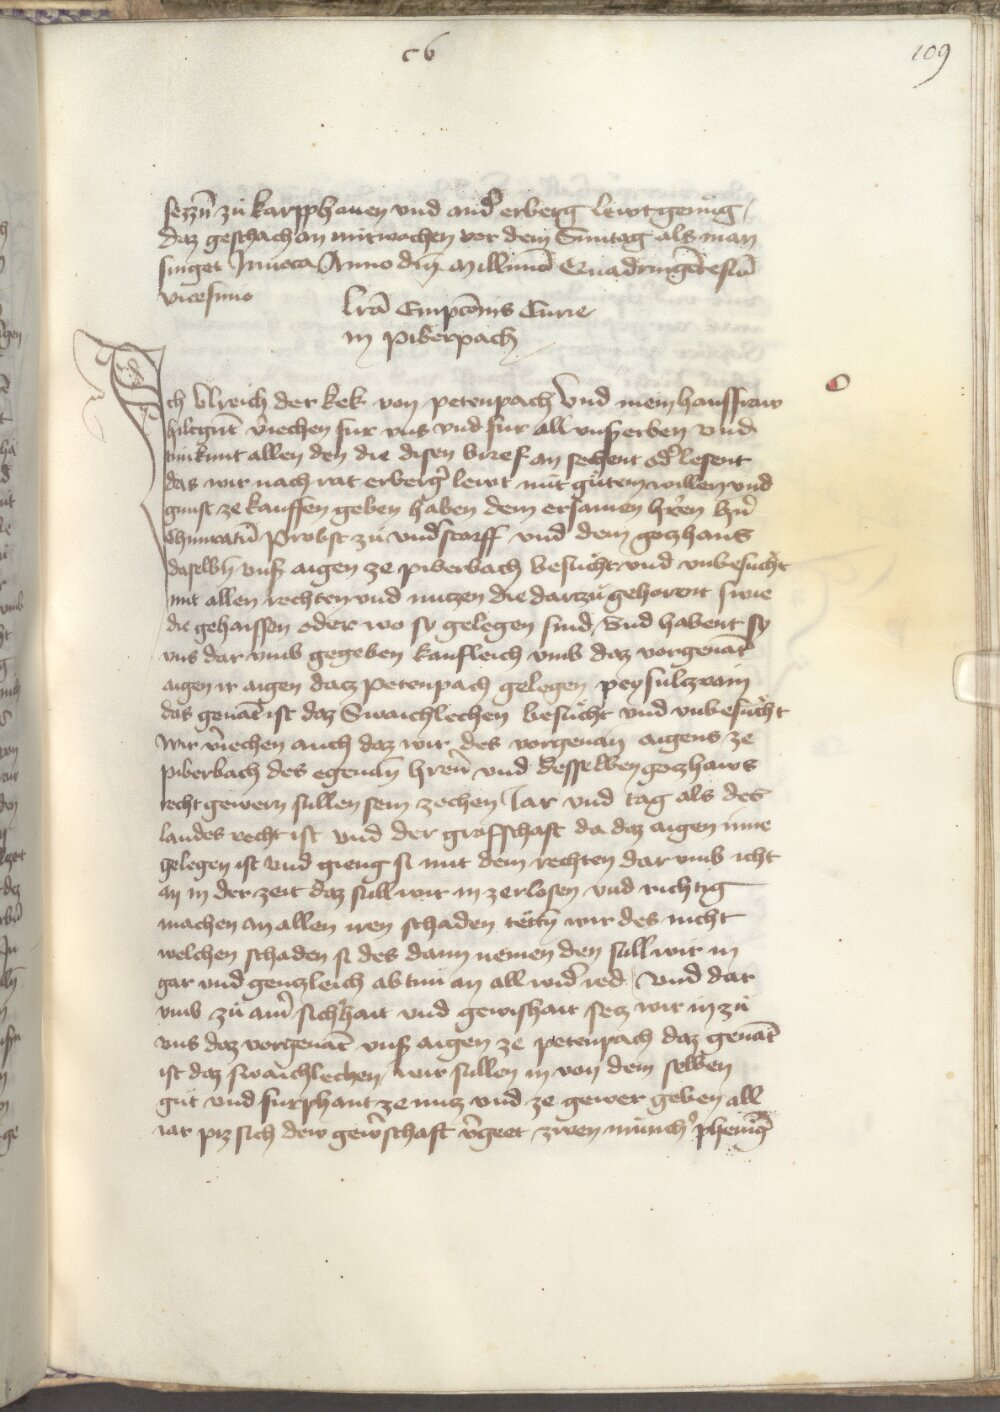 c6
109
sezzn̄ zů karpphouen vnd and̾ erberg lewt genůg /
daz geschach an mitwochen vor dem Sunntag als man
singet Inuoca Anno dn̄i Millimō Quadringētesiō
vicesimo
Lrā Empcōnis Curie
in piberpach
Ich vlreich der kek von petenpach Vnd mein hausfraw
v̾iechen fur vns vnd fur all vnß erben vnd
tun kunt allen den die disen brief an sehent od̾ lesent
das wir nach rat erberg̾ lewt mit gůtem willen vnd
gunst ze kauffen geben haben dem ersamen hr̄en hn̄
chunratn̄ Probst zů vnd̾storff vnd dem gotzhaus
daselbn̄ vnß aigen ze piberbach besůcht vnd vnbesůcht
mit allen rechten vnd nutzen die dartzů gehorent swie
die gehaissen oder wo sy gelegen sind / Vnd habent sy
vns dar vmb gegeben kaufleich vmb daz vorgenāt
aigen ir aigen datz Petenpach gelegen pey sultzrain
das genāt ist daz Swaichlechen besůcht vnd vnbesůcht
Wir v̾iechen auch daz wir des vorgenan̄ aigens ze
piberbach des egenan̄ hren̄ vnd desselben gotzhaws
recht gewern sullen sein zechen Jar vnd tag als des
landes recht ist vnd der grafschaft da daz aigen inne
gelegen ist vnd gieng si mit dem rechten dar vmb icht
an in der zeit daz sull wir in zerlosen vnd richtig
machen an allen iren schaden tettn̄ wir des nicht
welchen schaden si des dann nemen den sull wir in
gar vnd gentzleich ab tun an all wid̾ red / Vnd dar
vmb zů am̄ sich̾hait vnd gewishait setz wir in zů
vns daz vorgenāt vnß aigen ze petenpach daz genāt
ist daz swaichlechen / wir sullen in von dem selben
gůt vnd furphant ze nutz vnd ze gewer geben all
iar piz sich dew gew̾schaft v̾geet zwen můnch̾ phenīg